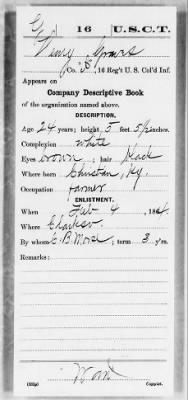 G 16 U.S.C.T.
Henry
Co. B, 16 Reg't U.S. Col'd Inf.
Appears on
Company Descriptive Book
of the organization named above.
DESCRIPTION.
Age 24 years; height 5 feet 5½ inches.
Complexion white
Eyes brown; hair black
Where born Christian, Ky.
Occupation farmer
ENLISTMENT.
When Feb 4, 1864.
Where Clarksv.
By whom C. B. Morse; term 3 y'rs.
Remarks:
Copyist.